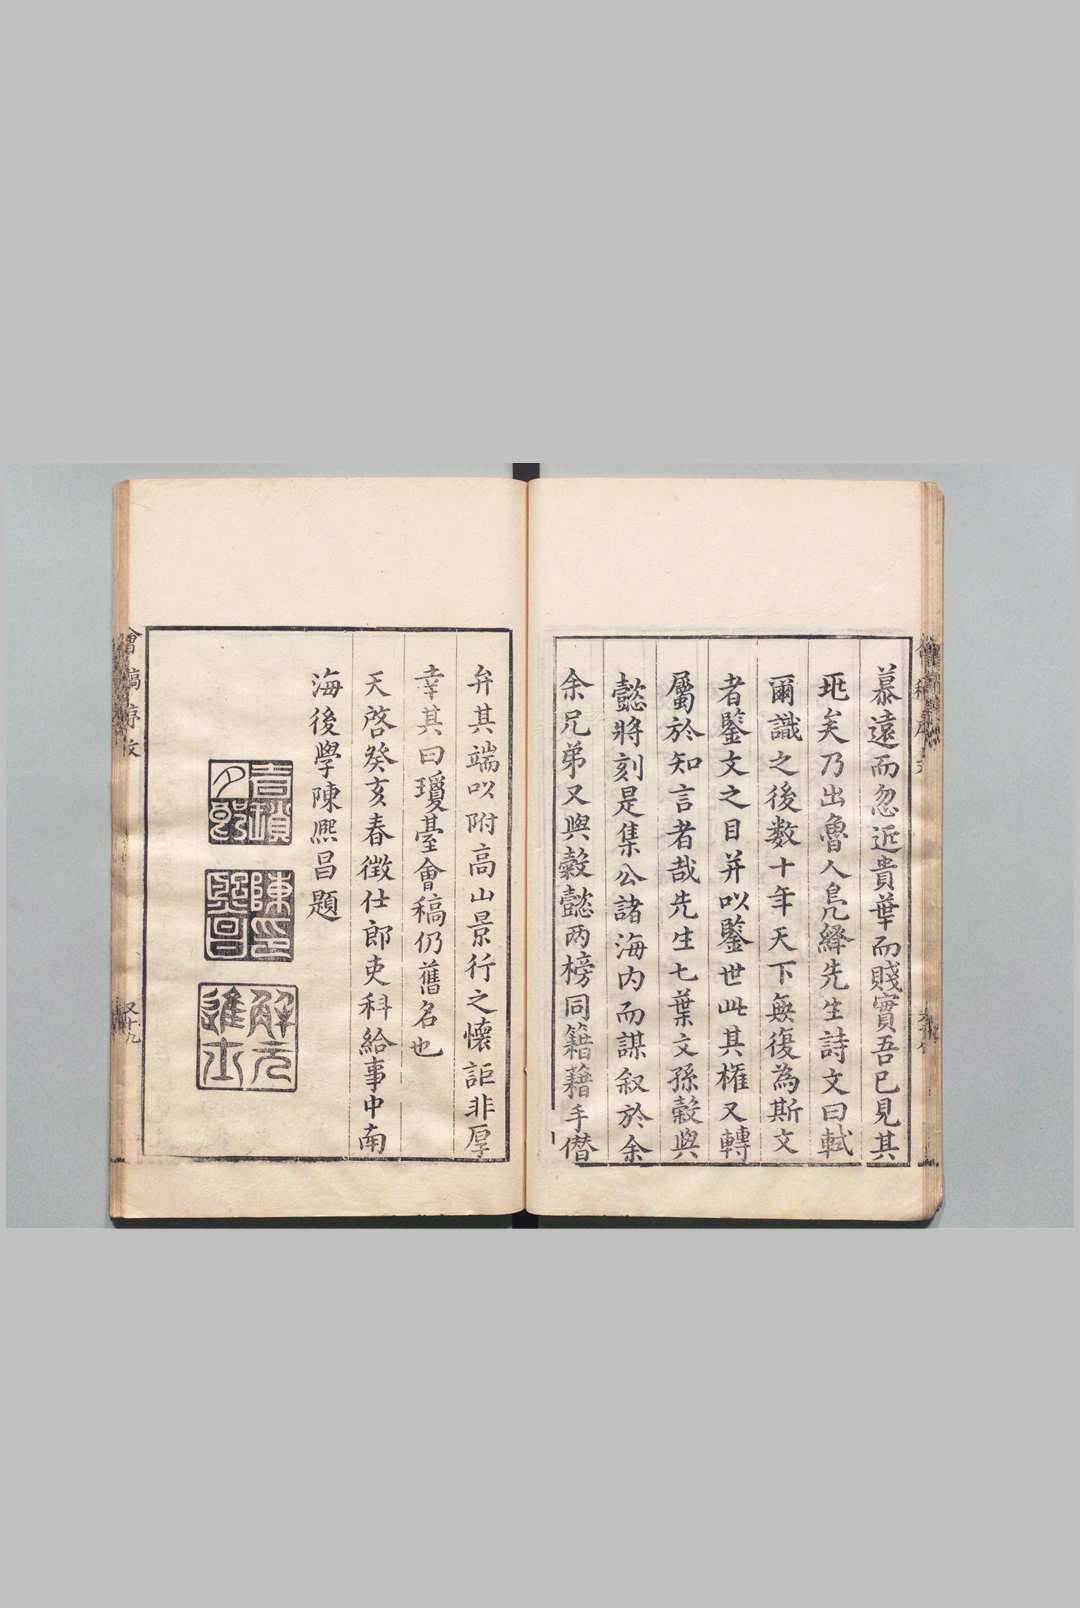 慕遠而忽近貴華而賤實吾已見其
矣乃出魯人鳧繹先生詩文曰軾
爾識之後數十年天下無復為斯文
者鑒文之目并以鑒世此其權又轉
屬於知言者哉先生七葉文孫縠與
懿將刻是集公諸海內而謀叙於余
余兄弟又與縠懿两榜同籍藉手僭
弁其端以附高山景行之懷詎非厚
幸其曰瓊臺會稿仍舊名也
天啓癸亥春徵仕郎吏科給事中南
海後學陳熈昌題
青瑣夕郎
陳印熈昌
解元進士
會稿序文
又十九